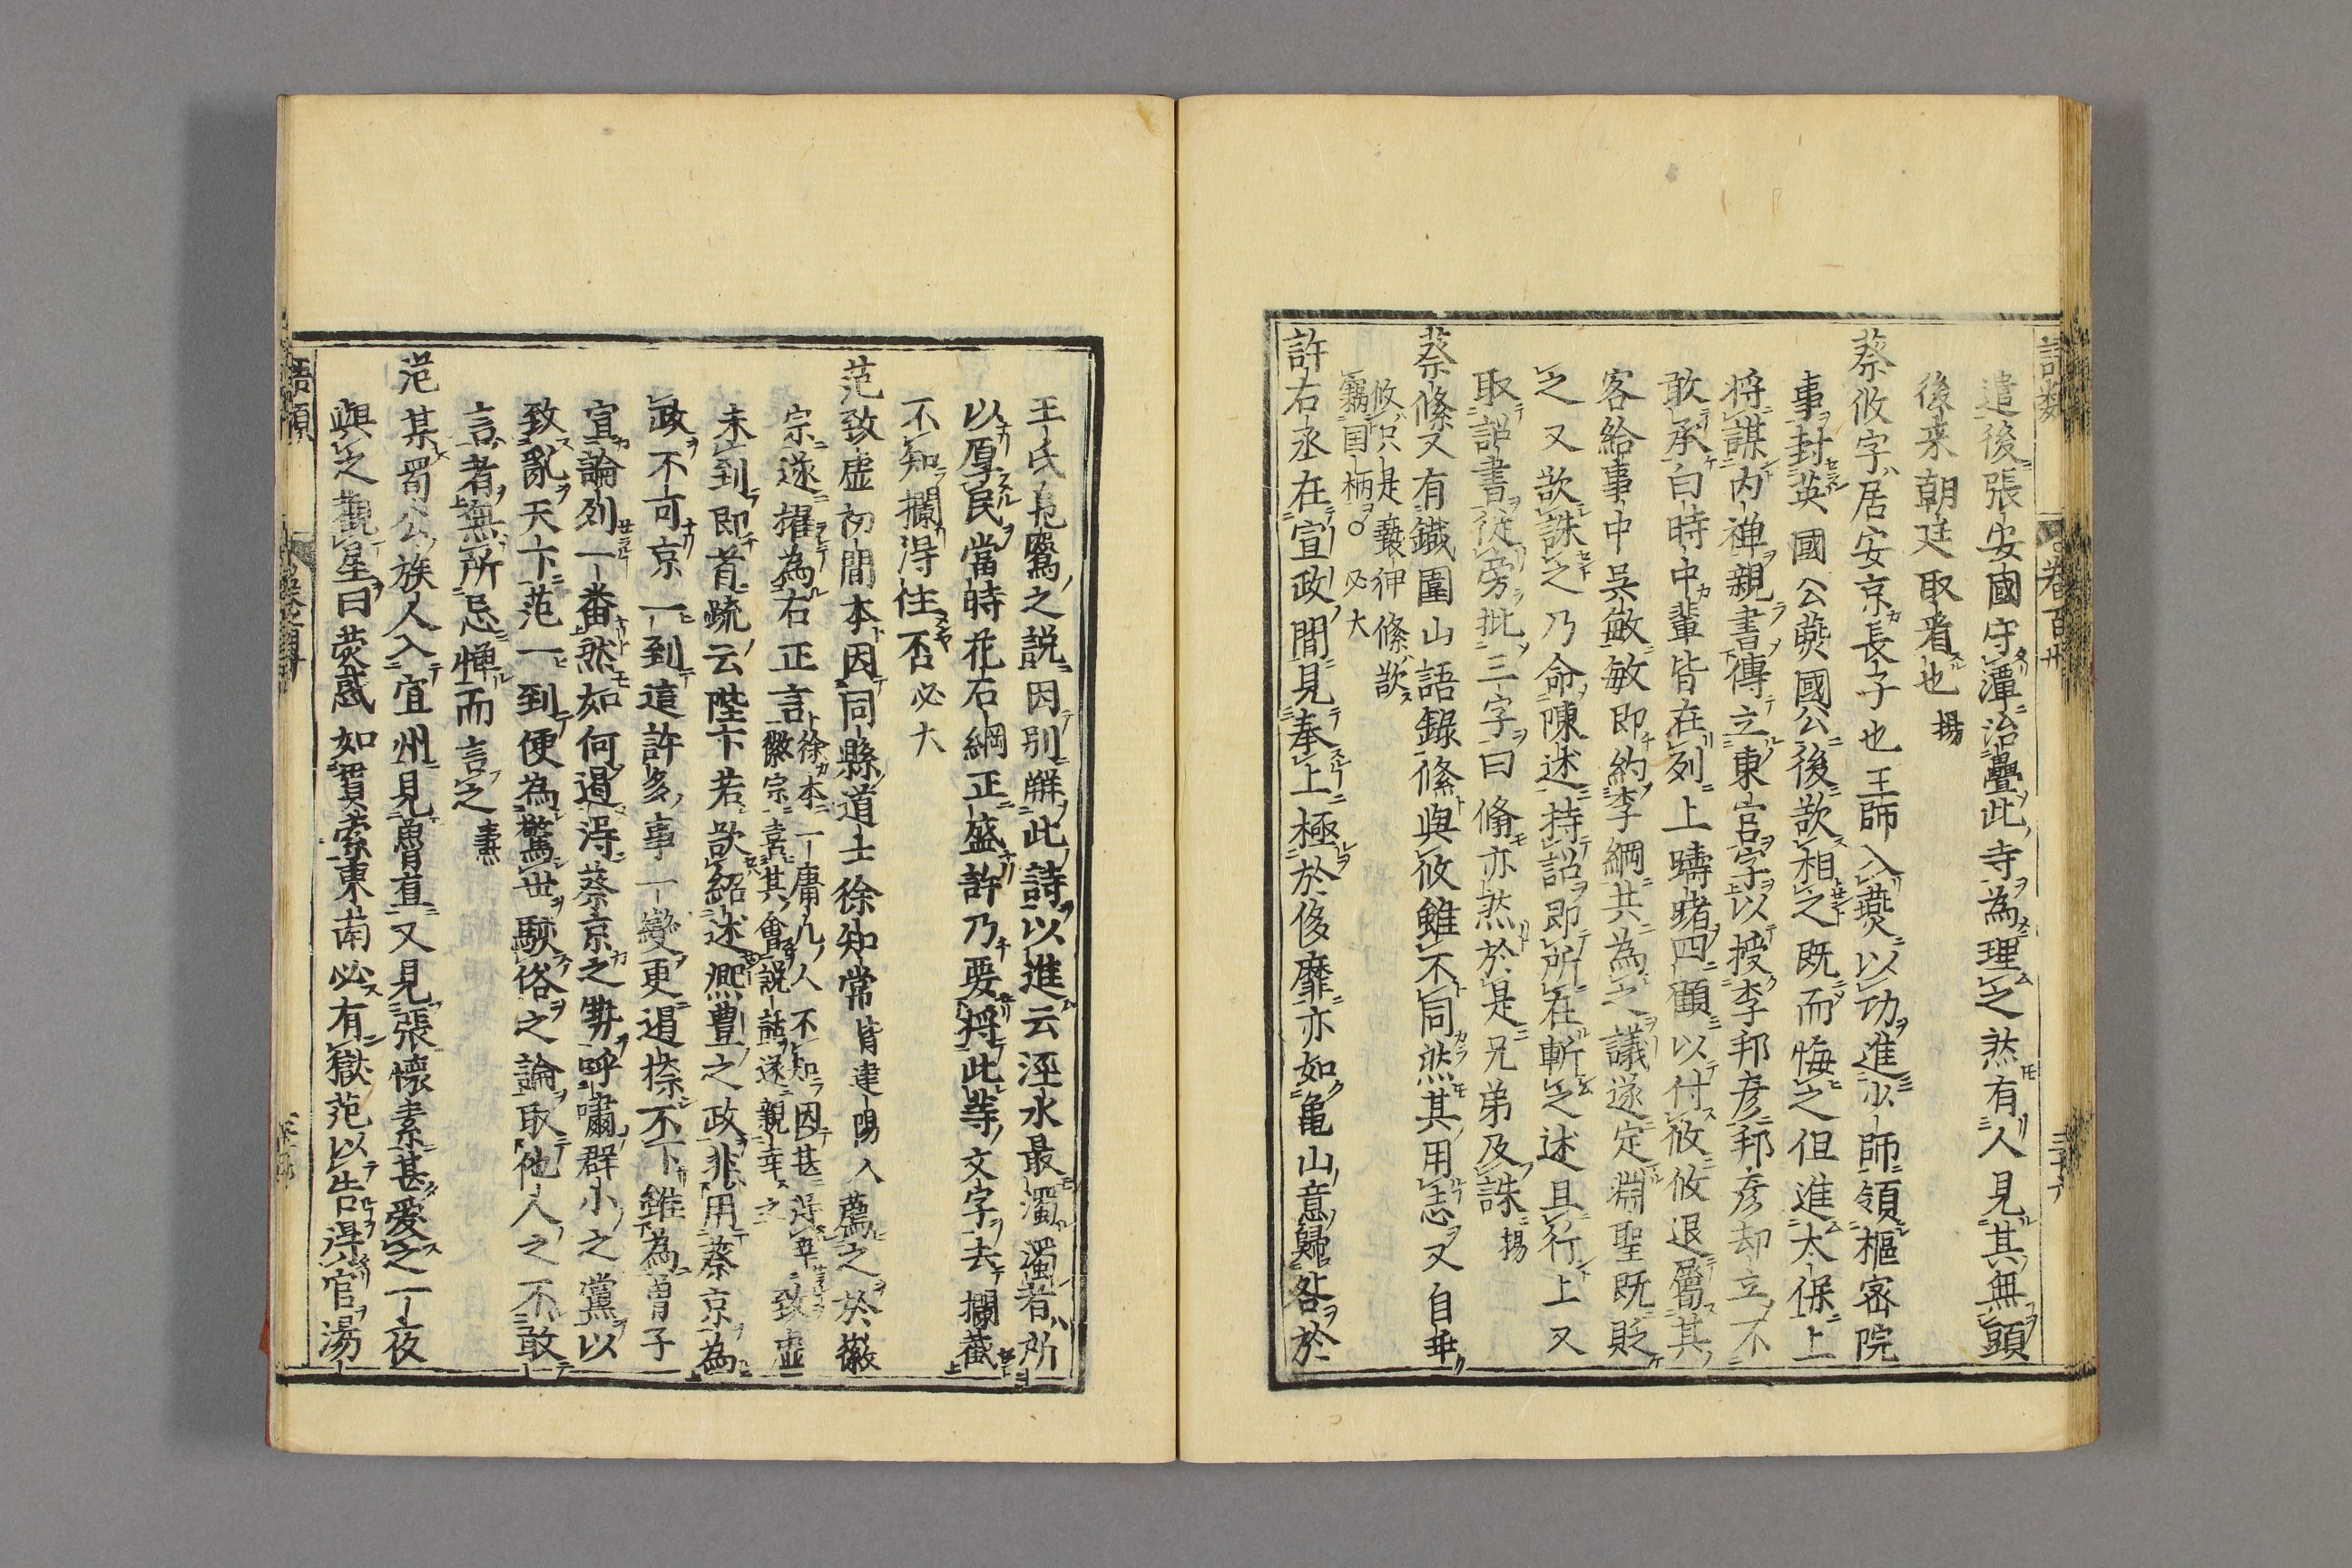 遣後張安國守潭治疊此寺為理之然有人見其無頭
後来朝廷取看也 揚
蔡攸字居安京長子也王師入燕以功進少師領樞密院
事封英國公燕國公後欲相之既而悔之但進太保上
将謀内禅親書傳立東宫字以授李邦彦邦彦却立不
敢承白時中輩皆在列上躊躇四顧以付攸攸退屬其
客給事中呉敏敏即約李綱共為之議遂定淵聖既貶
之又欲誅之乃命陳述持詔即所在斬之述且行上又
取詔書從旁批三字曰翛亦然於是兄弟及誅 揚
蔡絛又有鐵圍山語錄絛與攸雖不同然其用志又自乖
攸只是䙝狎絛欲
竊国柄○必大
許右丞在宣政間見奉上極於侈靡亦如亀山意歸咎於
王氏鳧鷖之説因別觧此詩以進云涇水最濁濁者所
以厚民當時花石綱正盛許乃要将此等文字去攔截
不知攔淂住否 必大
范致虚初間本因同縣道士徐知常皆建陽人薦之於徽
宗遂擢為右正言
徐本一庸凡人不知因甚淂幸
徽宗喜其會説話遂親幸之
致虚
未到即首疏云陛下若欲紹述熈豊之政非用蔡京為
政不可京一到這許多事一變更遏捺不下雖為曽子
宣論列一番然如何遏淂蔡京之勢呼嘯群小之黨以
致亂天下范一到便為驚世駭俗之論取他人之不敢
言者無所忌憚而言之 燾
范某蜀公族人入宜州見魯直又見張懷素甚愛之一夜
與之觀星曰熒惑如貫索東南必有獄范以告淂官湯